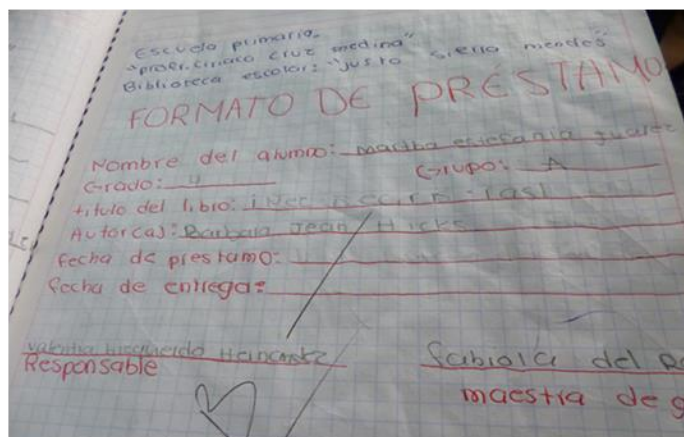 Escuela primaria.
"profr. Ciriaco cruz medina"
Biblioteca escolar: "justo sierra mendes"
FORMATO DE PRÉSTAMO
Nombre del alumno: Martha estefania
Grado: 4 Grupo: A
titulo del libro:
Autor(a): Barbara Jean Hicks
fecha de prestamo:
fecha de entrega:
Valentia Hernandez
Responsable
fabiola del
maestra de g